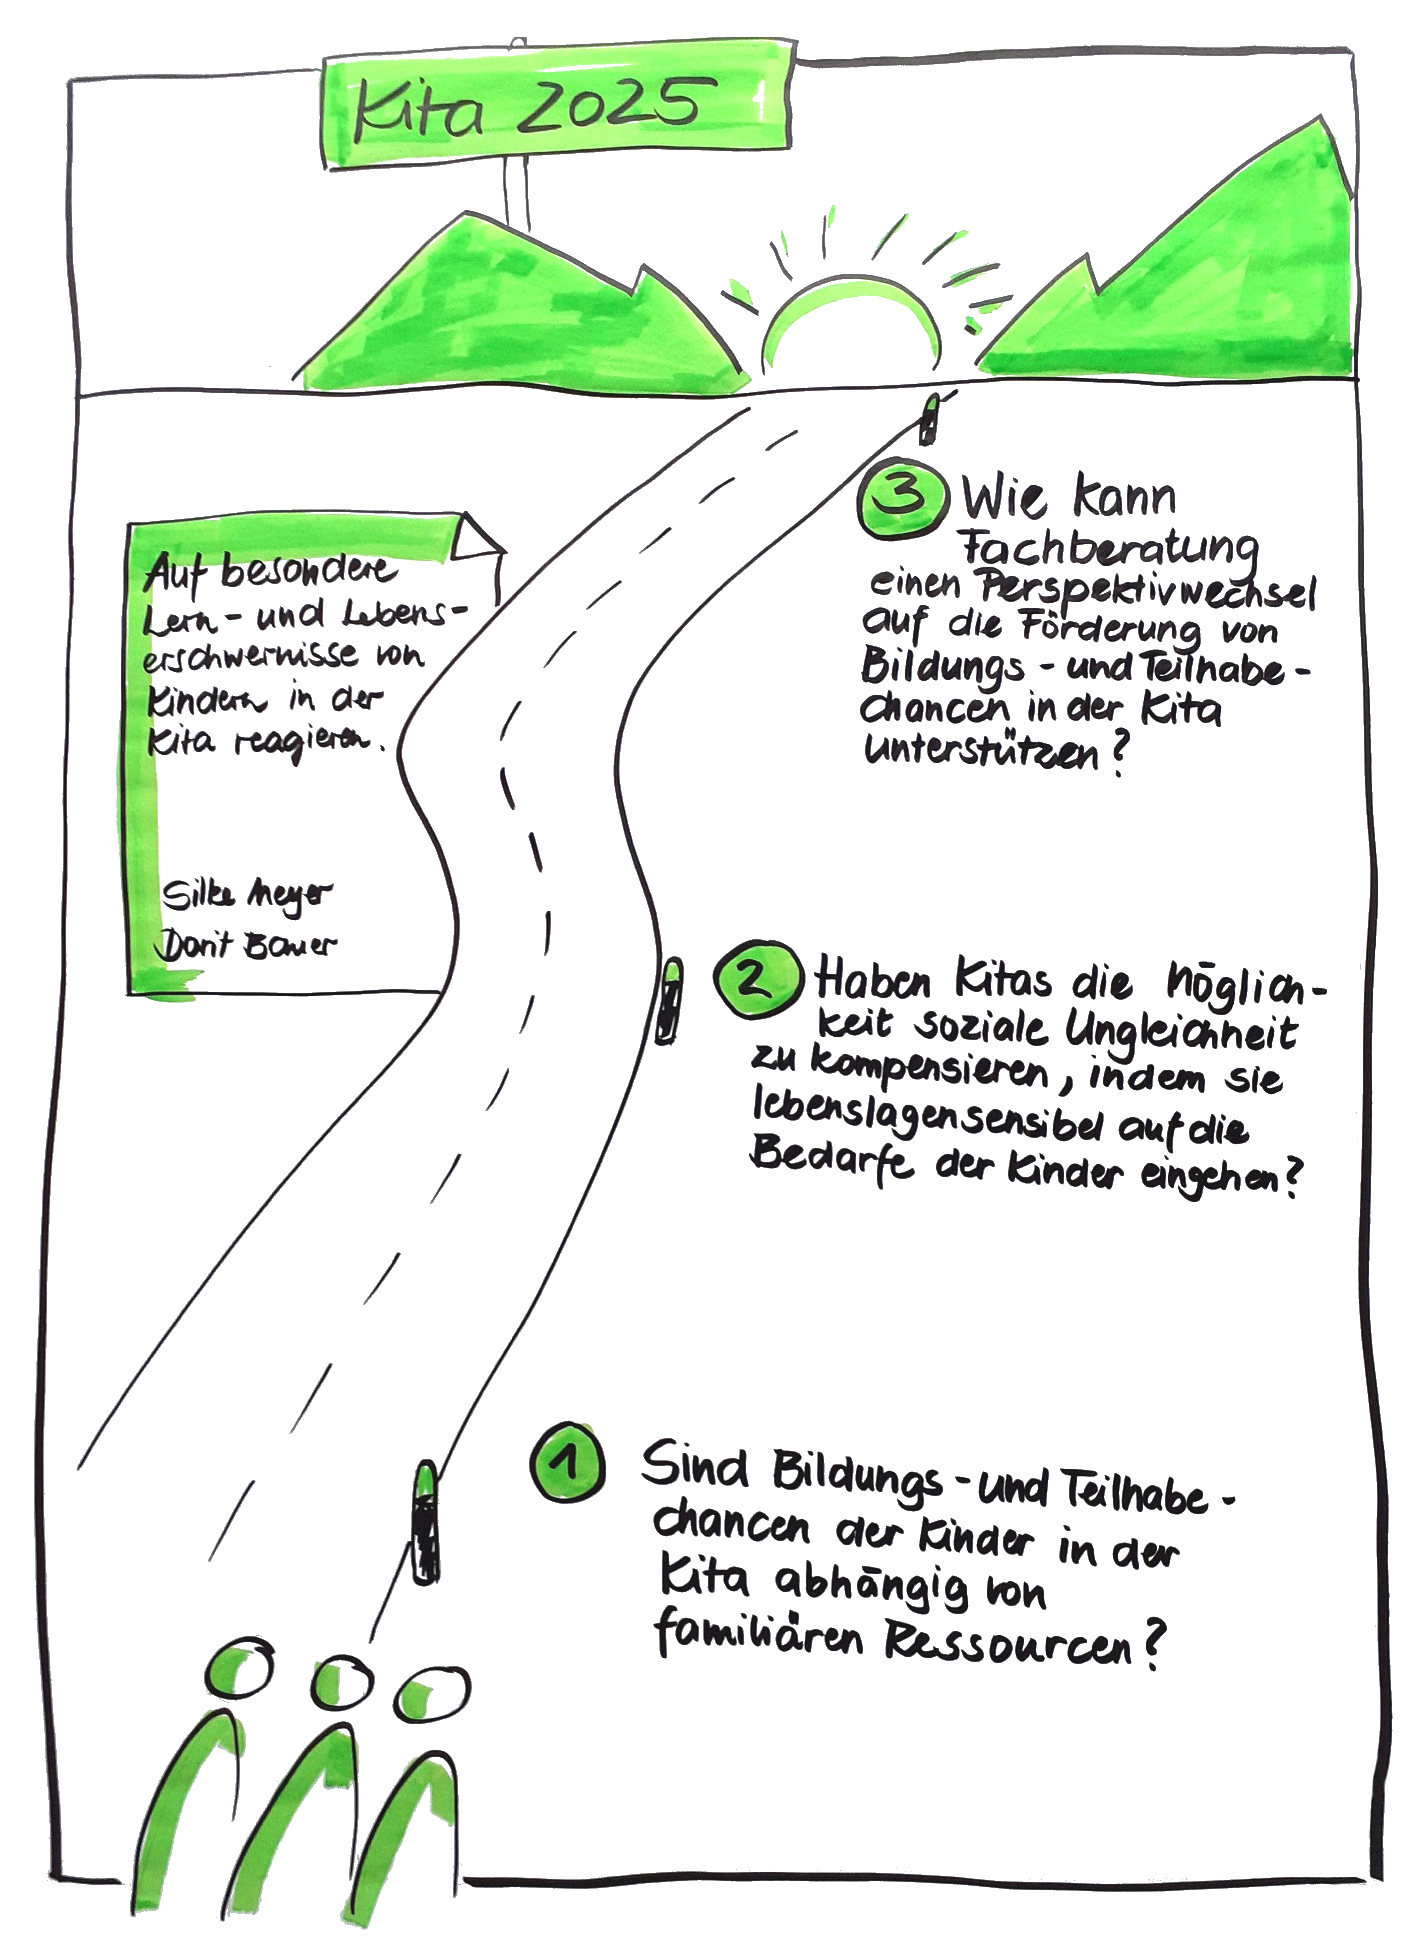 Kita 2025
Auf besondere
Lern- und Lebens-
erschwernisse von
Kindern in der
Kita reagieren.
Silke Meyer
Dorit Bauer
3 Wie kann
Fachberatung
einen Perspektivwechsel
auf die Förderung von
Bildungs- und Teilhabe-
chancen in der Kita
unterstützen?
2 Haben Kitas die Möglich-
keit soziale Ungleichheit
zu kompensieren, indem sie
lebenslagensensibel auf die
Bedarfe der Kinder eingehen?
1 Sind Bildungs- und Teilhabe-
chancen der Kinder in der
Kita abhängig von
familiären Ressourcen?